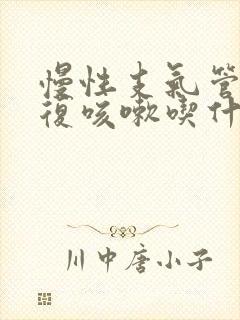 慢性支氣管
復咳嗽喫什
川中唐小子